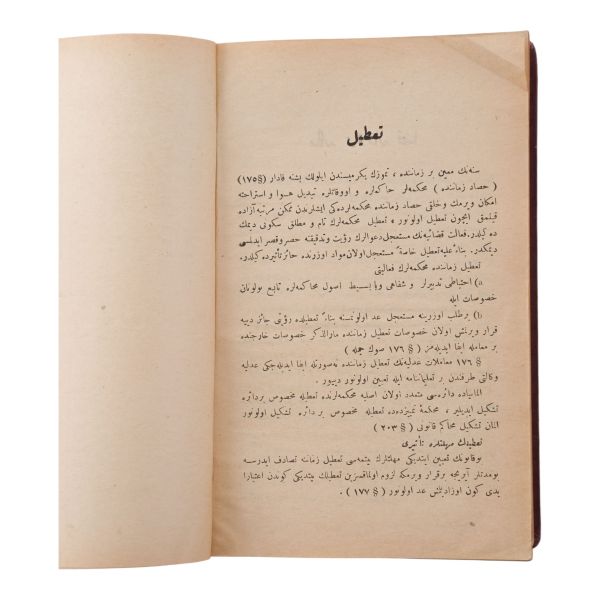 تعطيل
سنه‌نك معين بر زماننده ، تموزك يكرميسندن ايلولك بشنه قادار (§ ١٧٥)
( حصاد زماننده ) محكمه‌لر حاكملره و اووقاتلره تبديل هوا و استراحته
امكان ويرمك وخلقى حصاد زماننده محكمه‌لرده‌كى ايشلرندن ممكن مرتبه آزاده
قيلمق ايچون تعطيل اولونور ، تعطيل محكمه‌لرك تام و مطلق سكونى ديمك
ده كيلدر. فعاليت قضائيه‌نك مستعجل دعوالرك رؤيت وتدقيقنه حصر وقصر ايدلسى
ديمكدر. بناءً عليه تعطيل خاصةً مستعجل اولان مواد اوزرنده حائز تأثيرده كيلدر.
تعطيل زماننده محكمه‌لرك فعاليتى
a) احتياطى تدبيرلر و شفاهى ويا بسيط اصول محاكمه‌لره تابع بولونان
خصوصات ايله
b) برطلب اوزرينه مستعجل عد اولونمسنه بناءً تعطيلده رؤيتى جائز دييه
قرار ويرلمش اولان خصوصات تعطيل زماننده مارالذكر خصوصات خارجنده
بر معامله ايفا ايديله‌مز ( § ١٧٦ صوك جمله )
§ ١٧٦ معاملات عدليه‌نك تعطيل زماننده نه‌صورتله ايفا ايديله‌جكى عدليه
وكالتى طرفندن بر تعليماتنامه ايله تعيين اولونور دييور .
آلمانياده دائره‌سى متعدد اولان اصليه محكمه‌لرنده تعطيله مخصوص بردائره
تشكيل ايديلير ، محكمهٔ تميزده‌ده تعطيله مخصوص بر دائره تشكيل اولونور
آلمان تشكيل محاكم قانونى ( § ٢٠٣ )
تعطيلك مهلتلره تأثيرى
بوقانونك تعيين ايتديكى مهلتلرك بيتمه‌سى تعطيل زماننه تصادف ايدرسه
بومدتلر آيريجه برقرار ويرمكه لزوم اولماقسزين تعطيلك بيتديكى كوندن اعتبارا
يدى كون اوزاديلمش عد اولونور ( § ١٧٧ ) .